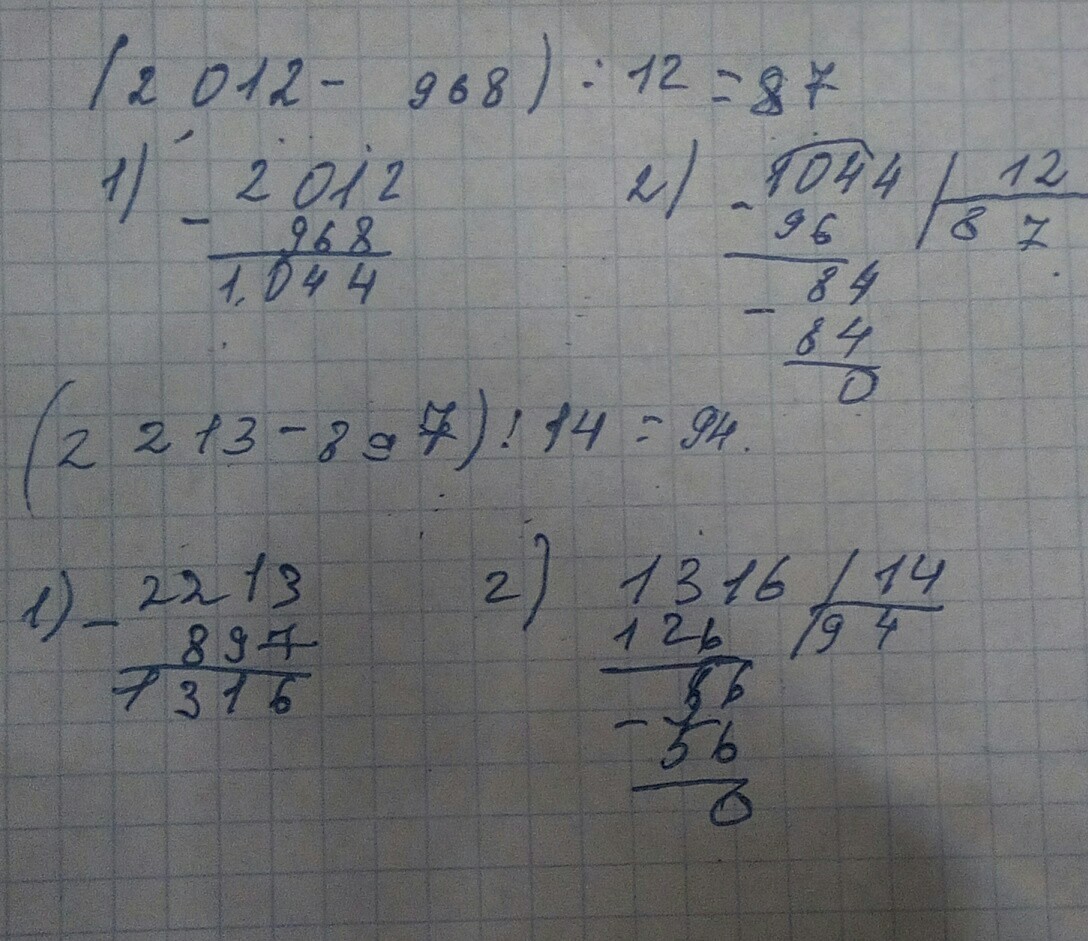 (2 012 - 968) : 12 = 87
1) - 2 012 2) - 1044 | 12
968 96 | 8 7
1.044 84
- 84
0
(2 2 13 - 897) : 14 = 94.
1) - 2213 2) 1316 | 14
897 126 | 94
1316 56
- 56
0